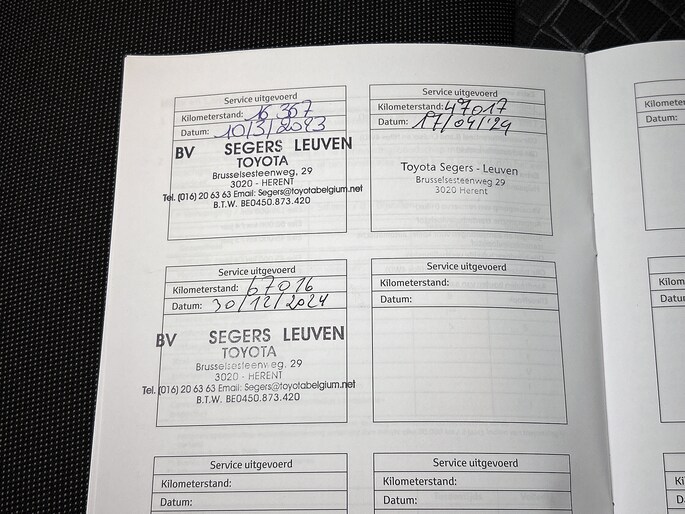 Service uitgevoerd
Kilometerstand: 16 367
Datum: 10/3/2023
BV SEGERS LEUVEN
TOYOTA
Brusselsesteenweg, 29
3020 - HERENT
Tel. (016) 20 63 63 Email: Segers@toyotabelgium.net
B.T.W. BE0450.873.420
Service uitgevoerd
Kilometerstand: 47017
Datum: 17/04/'24
Toyota Segers - Leuven
Brusselsesteenweg 29
3020 Herent
Service uitgevoerd
Kilometerstand: 67016
Datum: 30/12/2024
BV SEGERS LEUVEN
TOYOTA
Brusselsesteenweg, 29
3020 - HERENT
Tel. (016) 20 63 63 Email: Segers@toyotabelgium.net
B.T.W. BE0450.873.420
Service uitgevoerd
Kilometerstand:
Datum:
Service uitgevoerd
Kilometerstand:
Datum:
Service uitgevoerd
Kilometerstand:
Datum:
Datum: